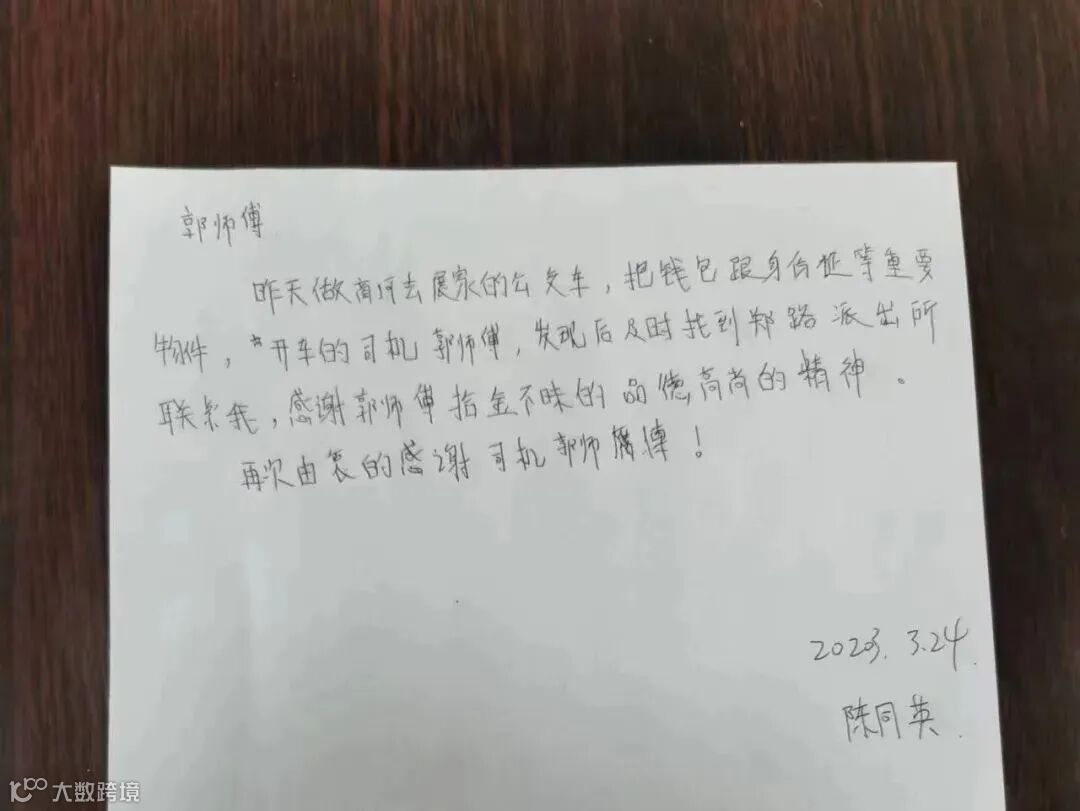 郭师傅
昨天做商河去展家的公交车,把钱包跟身份证等重要
物件,开车的司机郭师傅,发现后及时找到郑路派出所
联系我,感谢郭师傅拾金不昧的品德,高尚的精神。
再次由衷的感谢司机郭师傅!
2023.3.24.
陈同英.
大数跨境